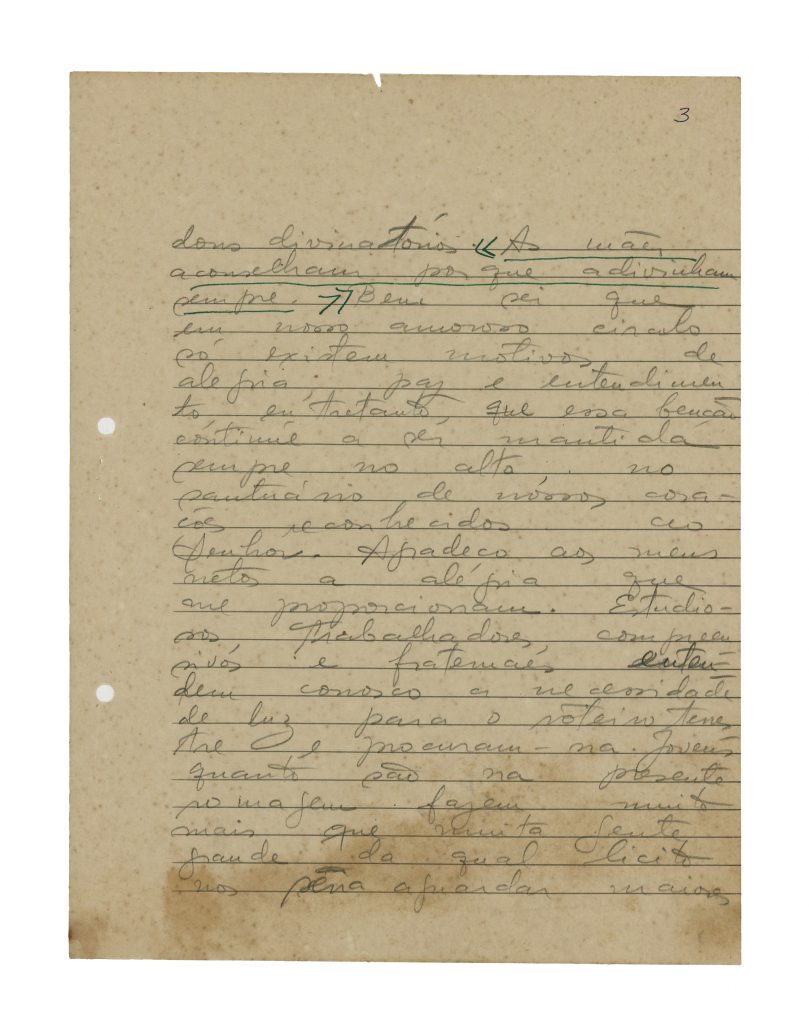 3
dons divinatórios. As mães
aconselham porque adivinham
sempre. Bem sei que
em nosso amoroso circulo
só existem motivos de
alegria, paz e entendimen
to entretanto, que essa benção
continue a ser mantida
sempre no alto. no
santuário de nossos cora-
ções reconhecidos ao
Senhor. Agradeço aos meus
netos a alegria que
me proporcionam. Estudio-
sos trabalhadores compreen
sivos e fraternais enten-
dem conosco a necessidade
de luz para o roteiro terres
tre e procuram-na. Jovens
quanto são na presente
romagem fazem muito
mais que muita gente
grande da qual licito
nos seria aguardar maiores